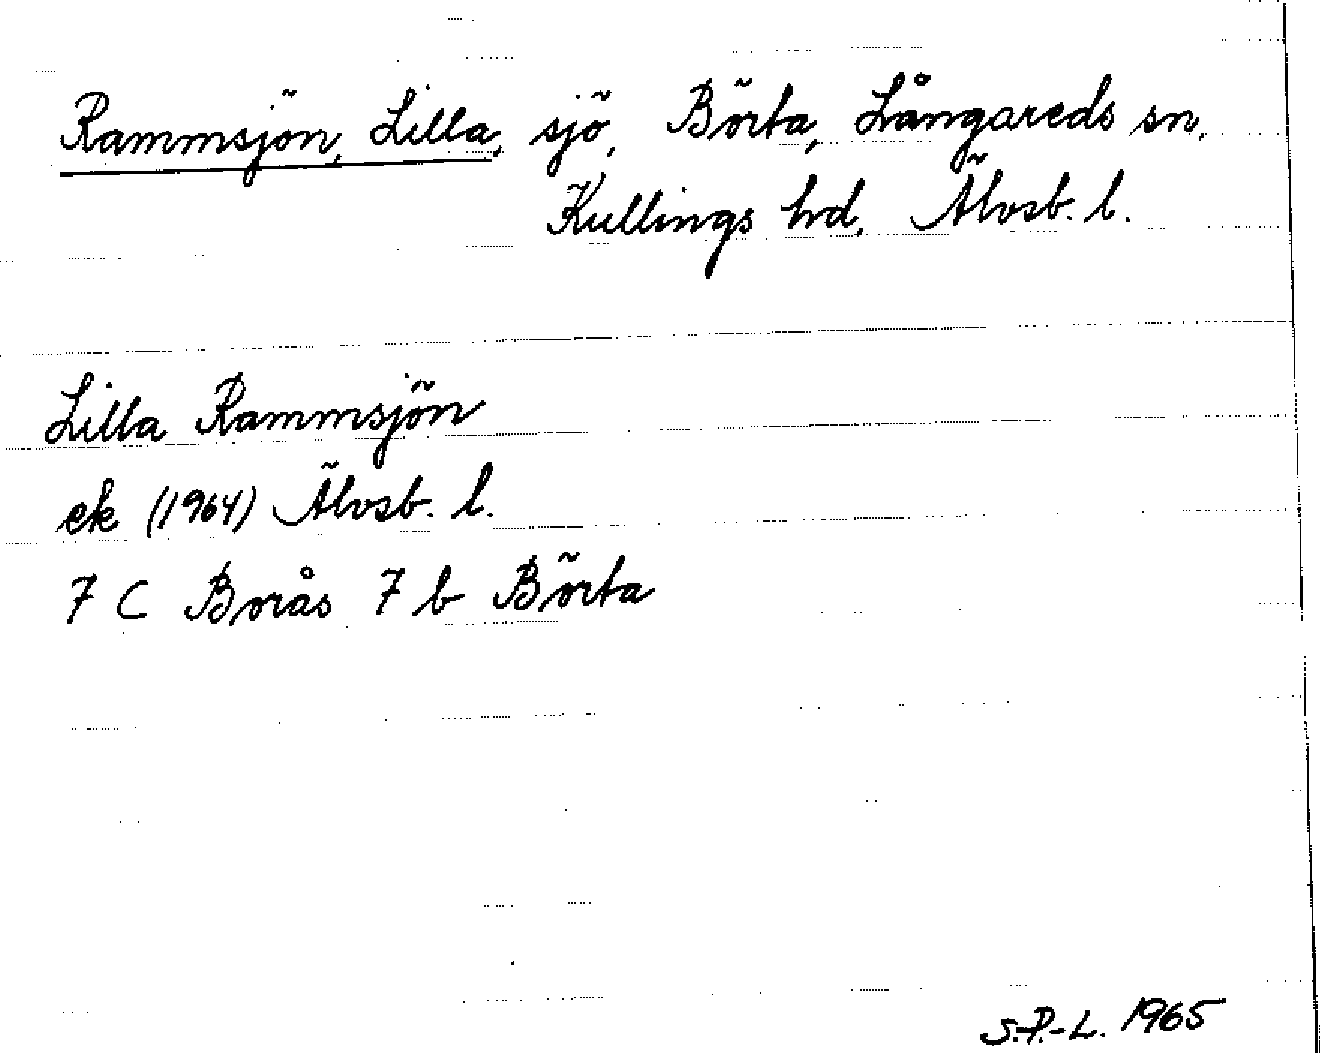 Rammsjön, Lilla, sjö, Börta, Långareds sn,
Kullings hd, Älvsb. l.
Lilla Rammsjön
ek (1964) Älvsb. l.
7 C Borås 7 b Börta
S.P.-L. 1965